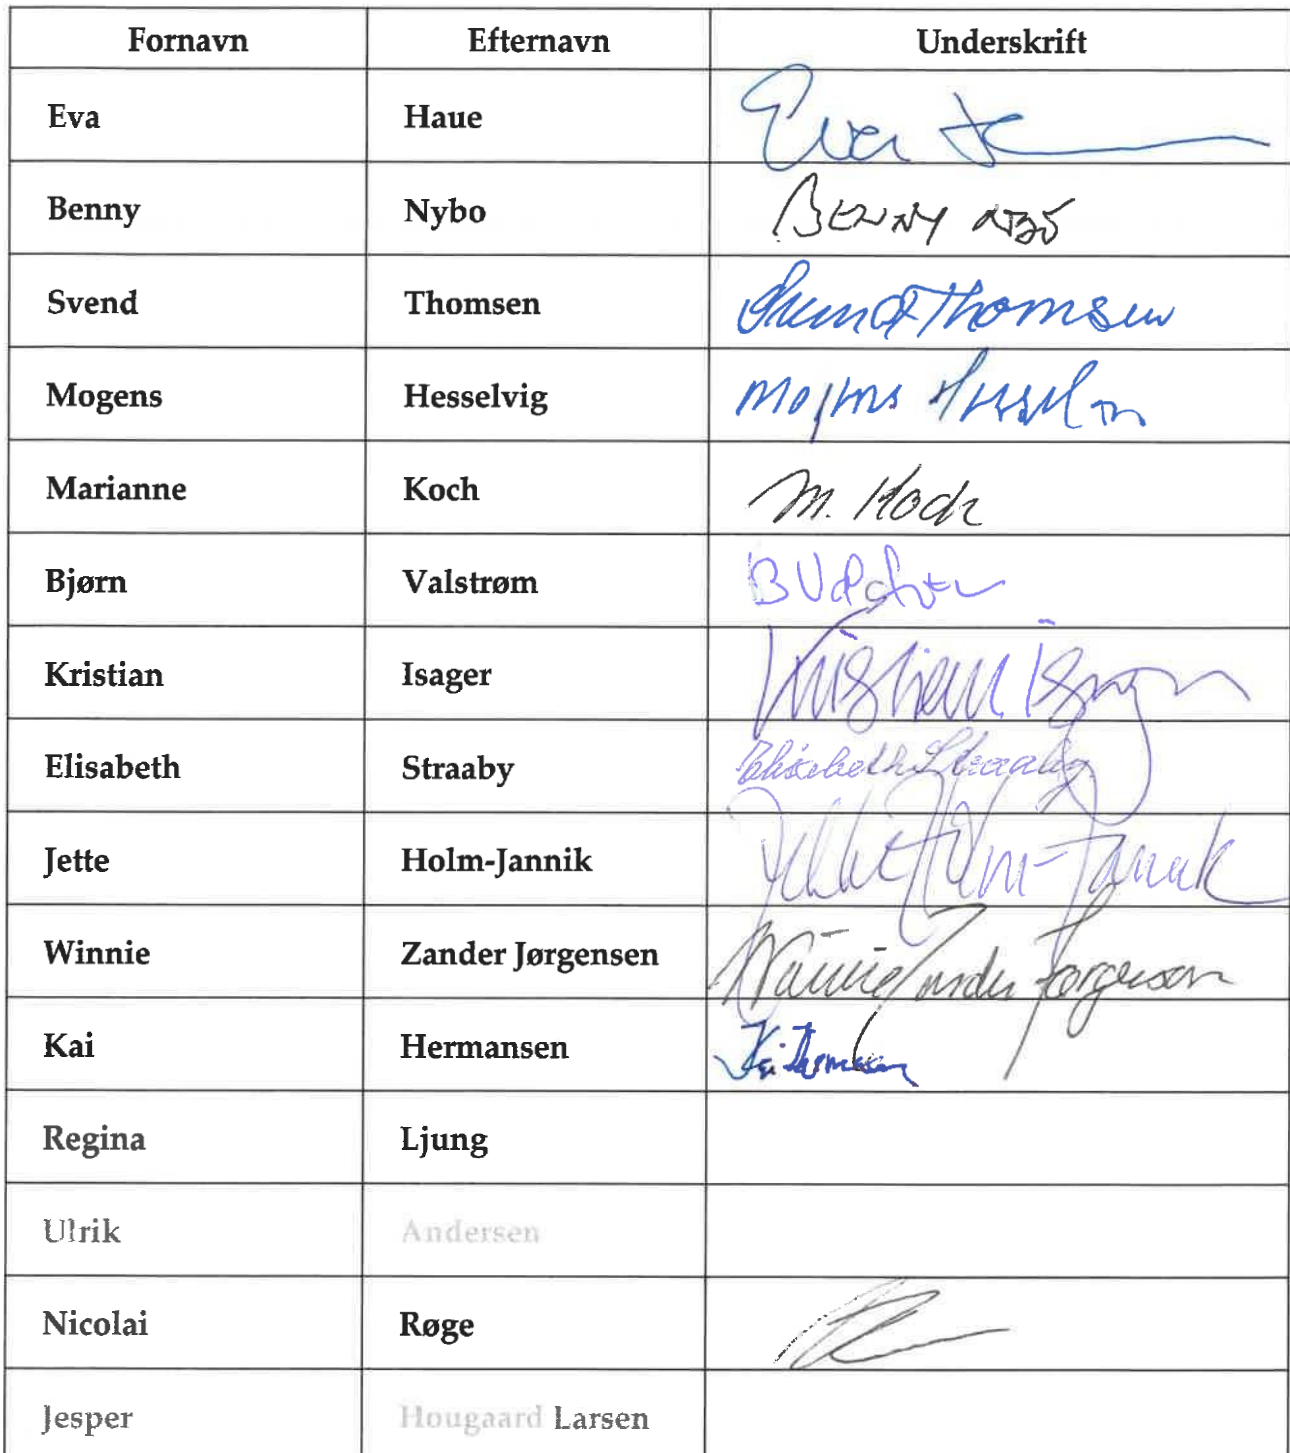 Fornavn Efternavn Underskrift
Eva Haue Eva
Benny Nybo BENNY
Svend Thomsen Svend Thomsen
Mogens Hesselvig Mogens
Marianne Koch M. Koch
Bjørn Valstrøm B
Kristian Isager Kristian Isager
Elisabeth Straaby Elisabeth Straaby
Jette Holm-Jannik Jette Holm-Jannik
Winnie Zander Jørgensen Winnie Zander Jørgensen
Kai Hermansen Kai Hermansen
Regina Ljung
Ulrik Andersen
Nicolai Røge
Jesper Hougaard Larsen